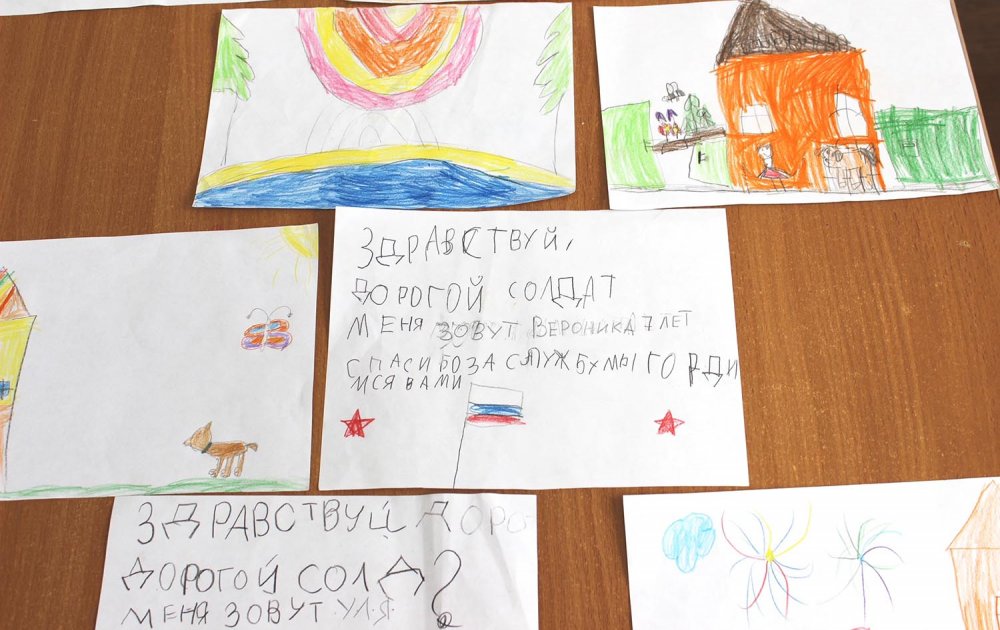 ЗДРАВСТВУЙ,
ДОРОГОЙ СОЛДАТ
МЕНЯ ЗОВУТ ВЕРОНИКА 7 ЛЕТ
СПАСИБО ЗА СЛУЖБУ МЫ ГОРДИ
МСЯ ВАМИ
ЗДРАВСТВУЙ ДОРО
ДОРОГОЙ СОЛД?
МЕНЯ ЗОВУТ УЛЯ